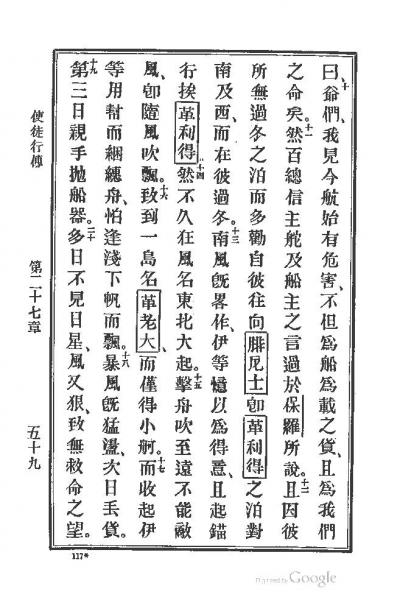 曰、爺們、我見今航始有危害、不但為船為載之貨、且為我們
之命矣。然百總信主舵及船主之言過於保羅所說。且因彼
所無過冬之泊而多勸自彼往向腓尼士卽革利得之泊對
南及西、而在彼過冬。南風旣畧作、伊等憶以為得意、且起錨
行挨革利得。然不久在風名東北大起。擊舟吹至遠不能敵
風、卽隨風吹飄。致到一島名革老大、而僅得小舸。而收起伊
等用幇而綑纏舟、怕逢淺下帆而飄。暴風旣猛盪、次日丢貨。
第三日親手拋船器。多日不見日星、風又狠、致無救命之望。
十
十一
十二
十三
十四
十五
十六
十七
十八
十九
二十
使徒行傳
第二十七章
五十九
117*
Digitized by Google